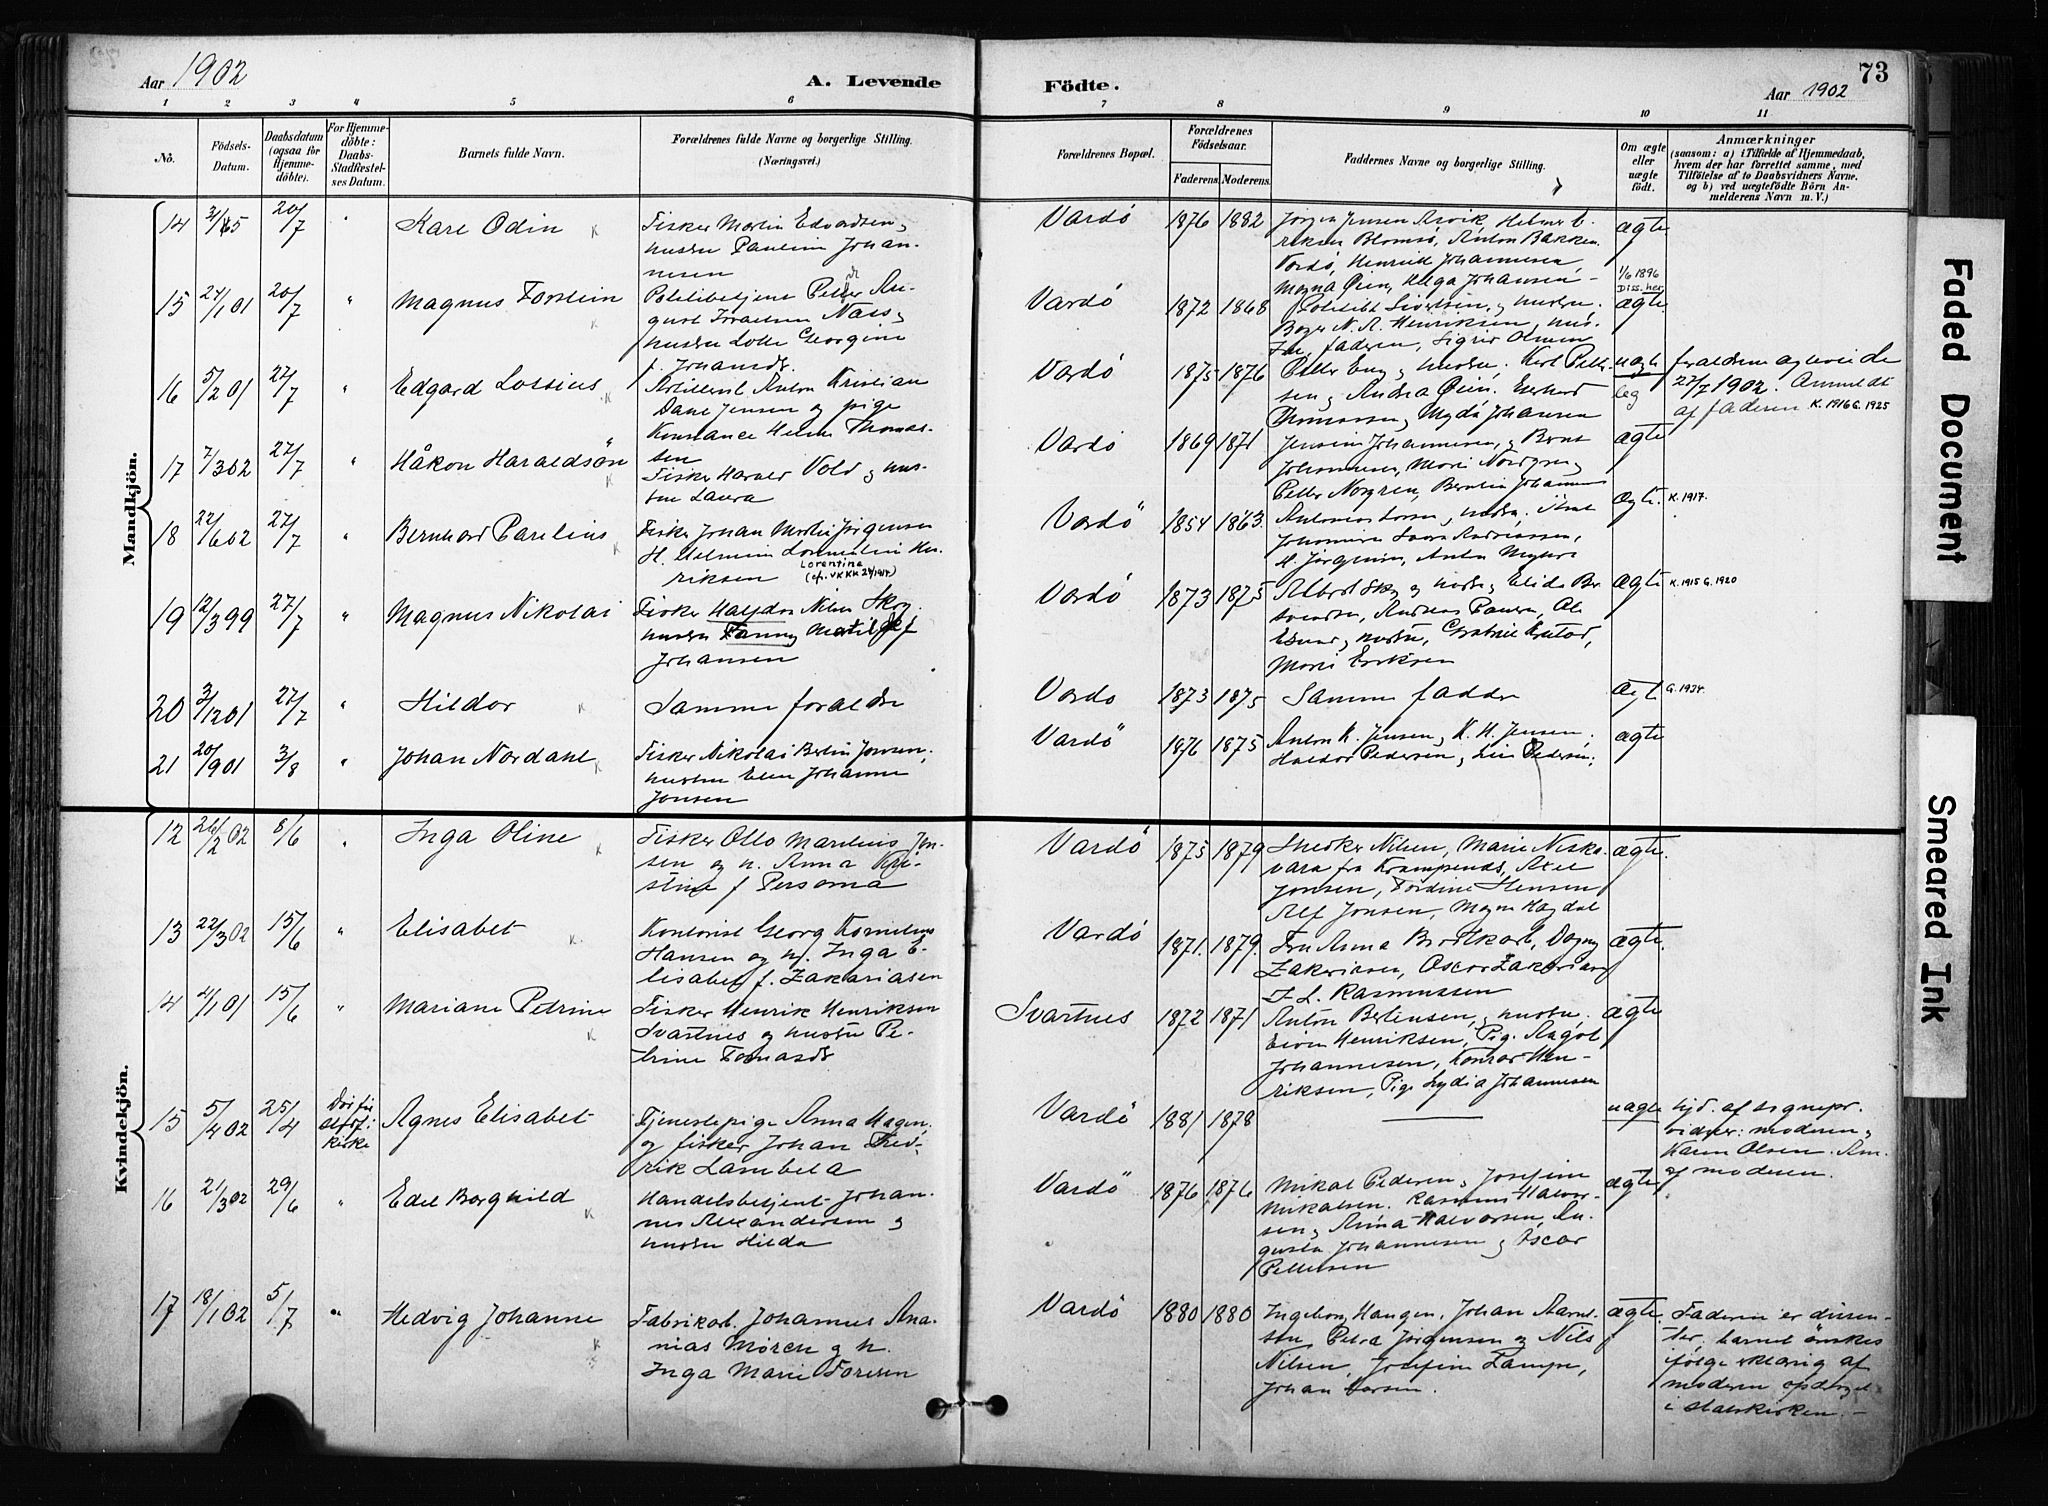 Aar 1902
A. Levende
Födte.
Aar 1902
73
1 2 3 4 5 6 7 8 9 10 11
Nô.
Födsels-
Datum.
Daabsdatum
(ogsaa for
Hjemme-
döbte).
For Hjemme-
döbte:
Daabs-
Stadfæstel-
ses Datum.
Barnets fulde Navn.
Forældrenes fulde Navne og borgerlige Stilling.
(Næringsvei.)
Forældrenes Bopæl.
Forældrenes
Födselsaar.
Faderens. Moderens.
Faddernes Navne og borgerlige Stilling.
Om ægte
eller
uægte
födt.
Anmærkninger
(saasom: a) i Tilfælde af Hjemmedaab,
hvem der har forrettet samme, med
Tilföielse af to Daabsvidners Navne.
og b) ved uægtefödte Börn An-
melderens Navn m. V.)
Mandkjön.
14 20/7 " Kare Odin
Fisker Martin Edvardsen,
hustru Pauline Johan-
nesen
Vardö 1876 1882
Helmer E-
riksen Blomsö, Anton Bakken
Vardö, Henrik Johannesen
Magna Øien, Helga Johansen
ægte
15 24/1 01 20/7 " Magnus Torstein
Politibetjent Peder Au-
gust Israelsen Næss,
hustru Lotte Georgine
f. Johansdr.
Vardö 1872 1868
Politibt Sivertsen, hustru.
N. A. Henriksen, hus-
faderen, Sigrid Olsen
1/6 1896
Diss. her.
ægte
16 5/2 01 27/7 " Edgard Lossius
Artillerist Anton Kristian
Dane Jensen og pige
Konstance Helene Thomas-
sen
Vardö 1875 1876
Petter Eng og hustru. Karl Petter-
sen, Andrea Øien.
Thomassen, Magda Johansen
uægte
leg
forældrene ægteviede
27/7 1902. Anmeldt
af faderen K. 1916 G. 1925
17 7/3 02 27/7 " Håkon Haraldson
Fisker Harald Vold og hus-
tru Laura
Vardö 1869 1871
Jensine Johannesen, Bernt
Johannesen, Marie Nordgren,
Petter Norgren, Berntin Johannesen
ægte
18 22/6 02 27/7 " Bernhard Parelius
Fisker Johan Martin Jörgensen
H. Helmine Hen-
riksen
Lorentina
Vardö 1854 1863
Johannesen Laura Andreassen,
H. Jörgensen, Anton Myhre
ægte. K. 1917.
19 12/3 99 27/7 " Magnus Nikolai
Fisker Halfdan Nilsen Skog,
hustru Fanny Matilde f
Johansen
Vardö 1873 1875
Albert Skog og hustru, Elida Ber-
svendsen, Andreas Paulsen, Ole
hustru,
Marie Eriksen
ægte K. 1915 G. 1920
20 3/12 01 27/7 " Hildor
Samme forældre
Vardö 1873 1875
Samme faddre
Ægt. G. 1934.
21 20/9 01 3/8 " Johan Nordahl
Fisker Nikolai Bertin Jensen,
hustru Elen Johanne
Jonsen
Vardö 1876 1875
Anton K. Jensen, K. H. Jensen,
Haldor Pedersen, Pedersen.
ægte
Kvindekjön.
12 26/2 02 8/6 " Inga Oline
Fisker Otto Marelius Jon-
sen og h. Anna Kri-
stine f Persdona
Vardö 1875 1879
Snedker Nilsen, Marie Niska-
vara fra Krampenes, Axel
Jonsen, Tordine Hensen
Alf Jonsen, Magna Hagdal
ægte.
13 22/3 02 15/6 " Elisabet
Kontorist Georg Kornelius
Hansen og H. Inga E-
lisabet f. Zakariasen
Vardö 1871. 1879.
Fru Anna Brodtkorb, Dagny
Zakariasen, Oscar Zakarias
I. L. Rasmussen
ægte.
4 4/1 01 15/6 " Mariane Petrine
Fisker Henrik Henriksen
Svartnes og hustru Pe-
trine Tomasdr.
Svartnes 1872 1871
Anton Bertensen, hustru.
Henriksen, Pig. Aagot
Johannesen, Konrad Hen-
riksen, Pige Lydia Johannesen
ægte
15 5/4 02 25/4
kirke
Agnes Elisabet
Tjenestepige Anna Hagen
og fisker Johan Fred-
rik Lambela
Vardö 1881 1878
uægte
hjd. af sognepr.
vidner: moderen,
Karen Olsen. Anm.
af moderen.
16 21/3 02 29/6 " Edel Borghild
Handelsbetjent Johan-
nes Alexandersen og
hustru Hilda
Vardö 1876 1876
Mikal Pedersen, Josefine
Mikalsen. Rasmus Halvor-
sen, Anna Halvorsen, Au-
gusta Johannesen og Oscar
Pettersen
ægte
17 18/1 02 5/7 " Hedvig Johanne
Fabrikarb. Johannes Ana-
nias Møren og h.
Inga Marie Toresen
Vardö 1880 1880
Ingeborg Haugen, Johan Aarnt-
sen Petra Jørgensen og Nils
Nilsen, Josefine Lampe,
Johan Larsen.
ægte.
Faderen er dissen-
ter, barnet önskes
ifølge erklæring af
moderen opdraget
i statskirken. -
Faded Document
Smeared Ink